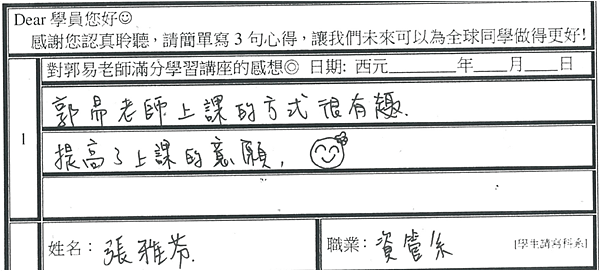 Dear 學員您好☺
感謝您認真聆聽，請簡單寫 3 句心得，讓我們未來可以為全球同學做得更好!
對郭易老師滿分學習講座的感想◎ 日期: 西元________年____月____日
1
郭易老師上課的方式很有趣.
提高了上課的意願,
姓名： 張雅芬.
職業： 資管系 [學生請寫科系]